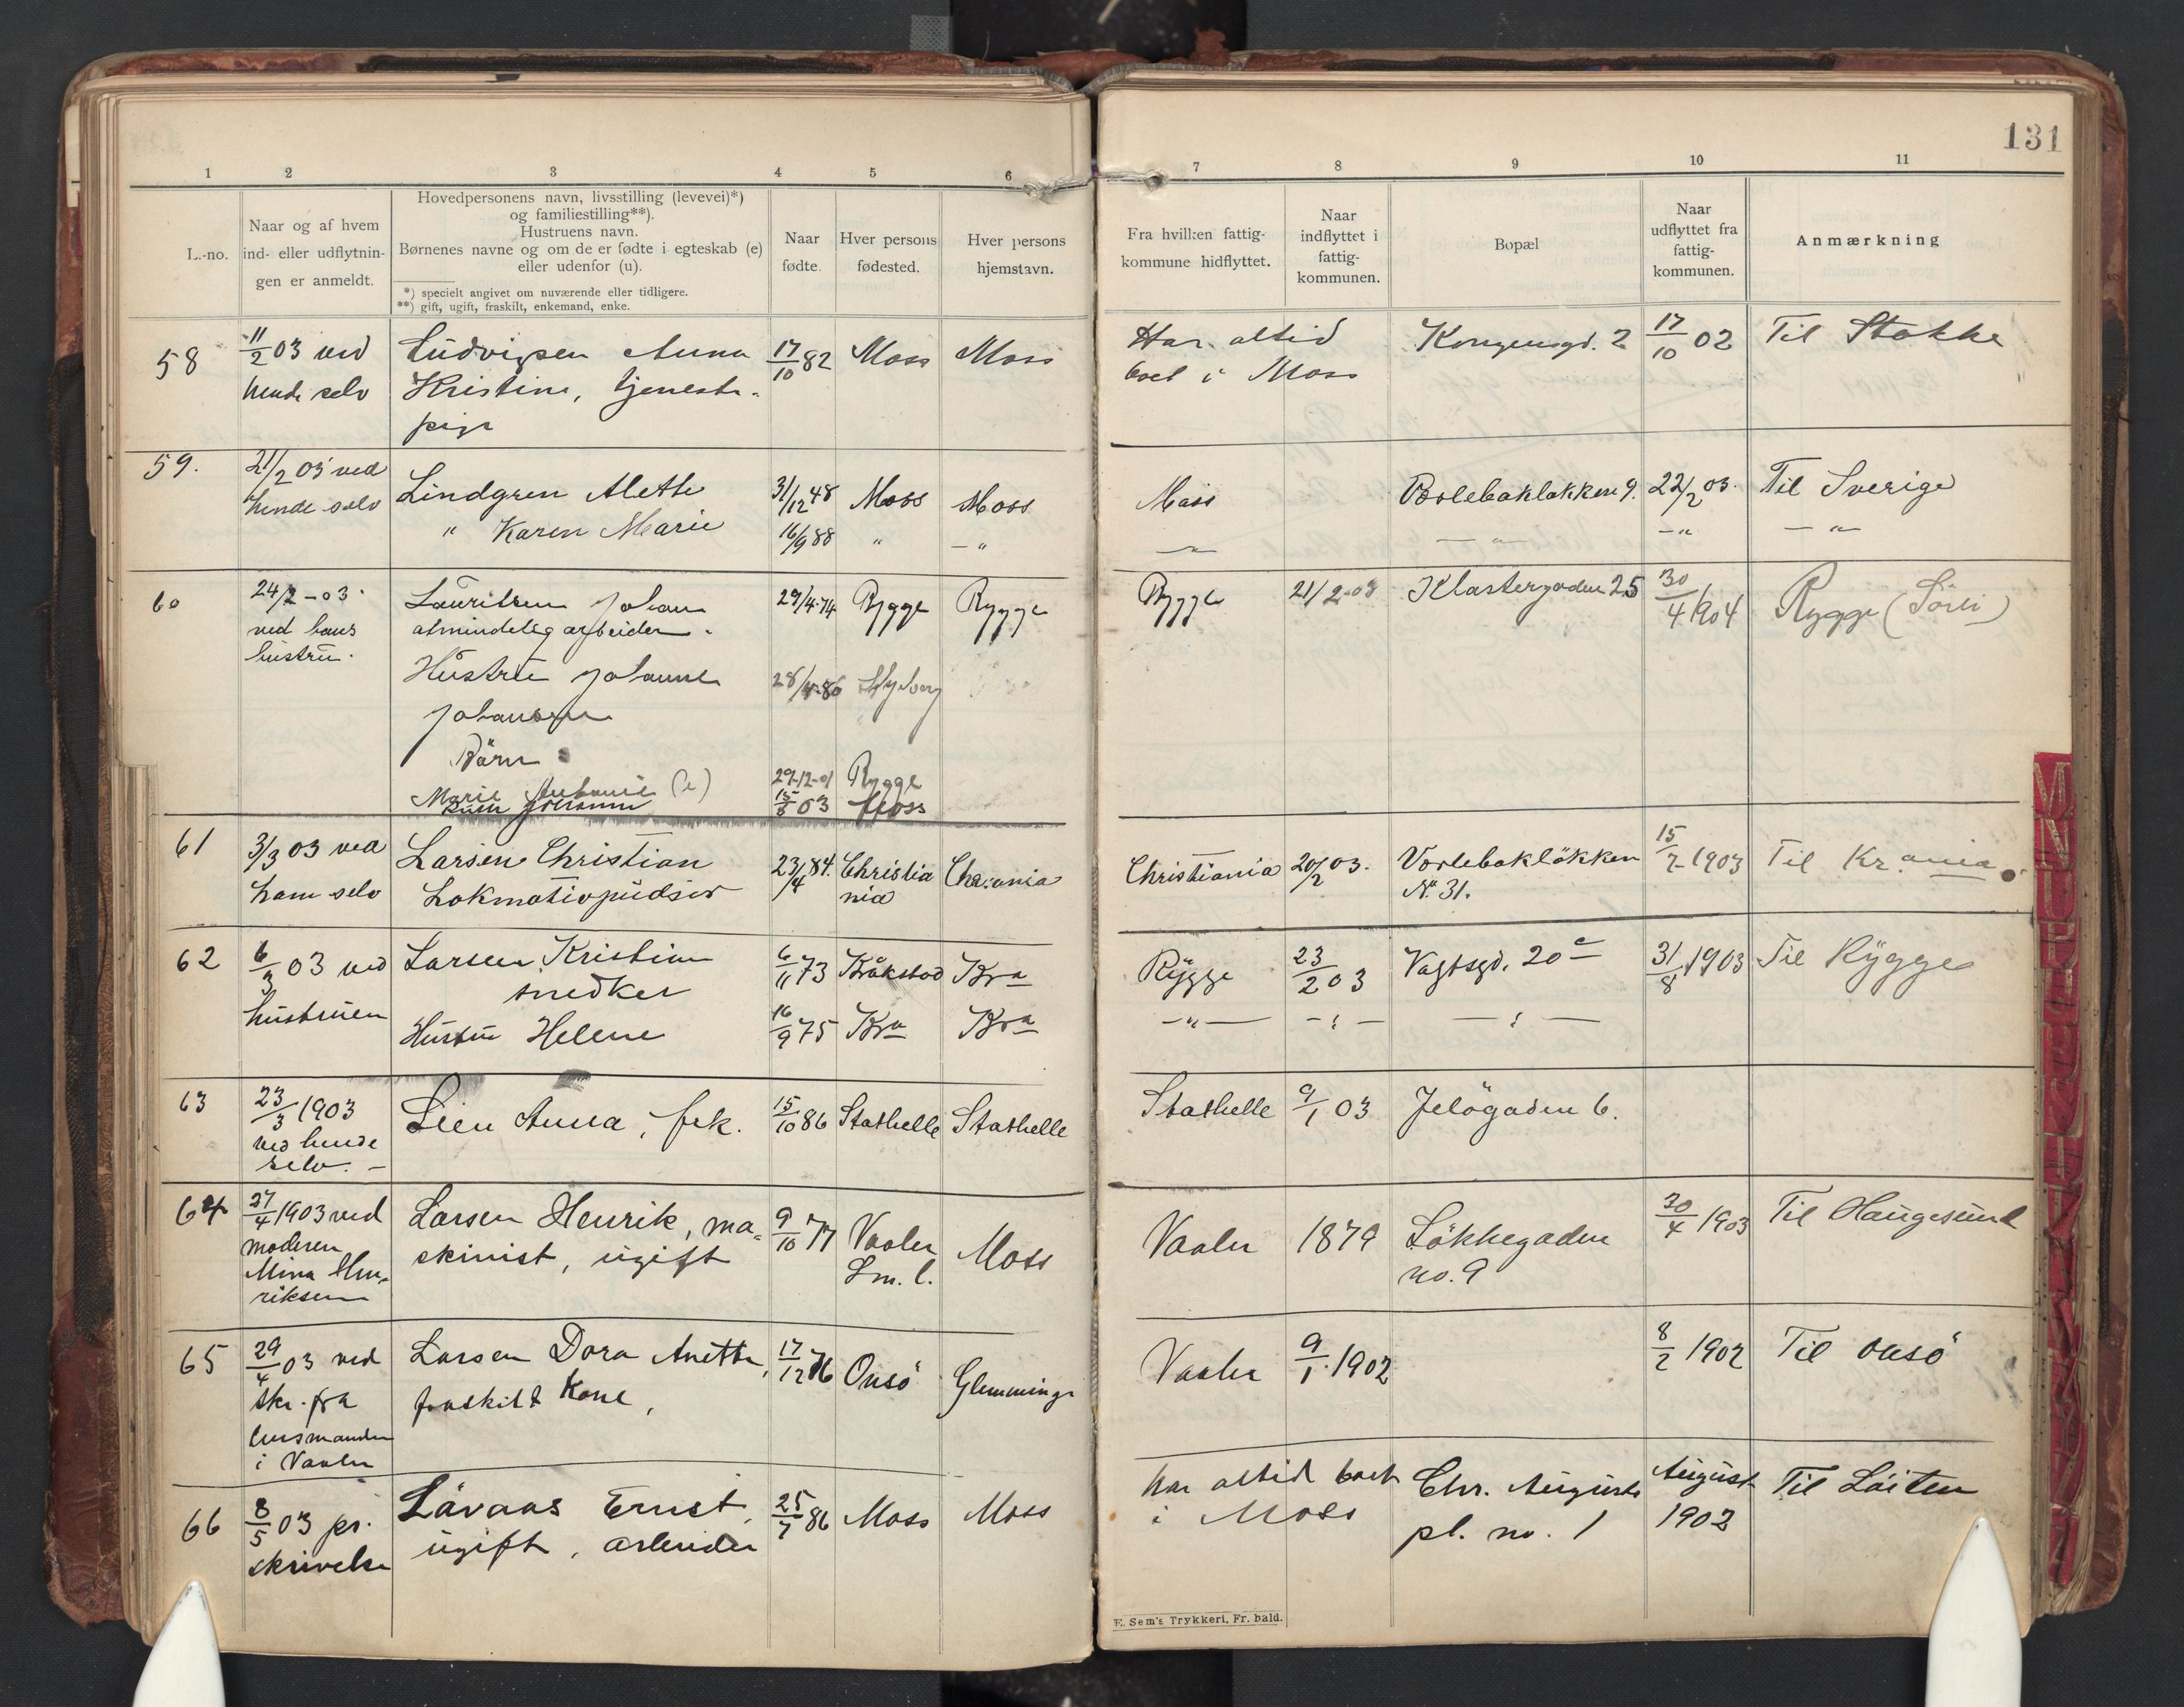 131
1 2 3 4 5 6 7 8 9 10 11
L.-no.
Naar og af hvem
ind- eller udflytnin-
gen er anmeldt.
Hovedpersonens navn, livsstilling (levevei)*)
og familiestilling**).
Hustruens navn.
Børnenes navne og om de er fødte i egteskab (e)
eller udenfor (u).
*) specielt angivet om nuværende eller tidligere.
**) gift, ugift, fraskilt, enkemand, enke.
Naar
fødte.
Hver persons
fødested.
Hver persons
hjemstavn.
Fra hvilken fattig-
kommune hidflyttet.
Naar
indflyttet i
fattig-
kommunen.
Bopæl
Naar
udflyttet fra
fattig-
kommunen.
Anmærkning
58
11/2 03 ved
hende selv
Ludvigsen Anna
Kristine, tjeneste-
pige
17/10 82
Moss
Moss
Har altid
boet i Moss
Kongensgd. 2
17/10 02
Til Stokke
59.
21/2 03 ved
hende selv
Lindgren Alethe
" Karen Marie
31/12 48
16/9 88
Moss
"
Moss
— "
Moss
— " —
Vorlebakløkken 9.
— " —
22/2 03.
— "
Til Sverige
— " —
60
24/2-03.
ved hans
hustru.
Lauritsen Johan
almindelig arbeider.
Hustru Johanne
Johansen
Børn:
Marie (e)
29/4-74
28/4-80
29-12-01
03
Rygge
Rygge
Moss
Rygge
Rygge
21/2-03
Klostergaden 25
30/4 1904
Rygge
61
3/3 03 ved
ham selv
Larsen Christian
Lokmotivpudser
23/4 84.
Christia
nia
Chr.ania
Christiania
20/2 03.
Vorlebakløkken
No. 31.
15/7 1903
Til Kr.ania.
62
6/3 03 ved
hustruen
Larsen Kristian
snedker
Hustru Helene
6/11 73
16/9 75
Kråkstad
Kra
Kra
Kra
Rygge
— " —
23/2 03
— " —
Vogtsgd. 20 c
— " —
31/8 1903
Til Rygge
63
23/3 1903
ved hende
selv. —
Lien Anna, frk.
15/10 86
Stathelle
Stathelle
Stathelle
9/1 03
Jeløgaden 6.
64
27/4 1903 ved
moderen
Mina Hen-
riksen
Larsen Henrik, ma-
skinist, ugift
9/10 77
Vaaler
Sm. l.
Moss
Vaaler
1879
Løkkegaden
no. 9
30/4 1903
Til Haugesund
65
29/4 03 ved
skr. fra
lensmanden
i Vaaler
Larsen Dora Anette,
fraskilt Kone,
17/12 76
Onsø
Glemminge
Vaaler
9/1 1902
8/2 1902
Til Onsø
66
8/5 03 pr.
skrivelse
Løvaas Ernst,
ugift, arbeider
25/7 86
Moss
Moss
har altid boet
i Moss
Chr. Augusts
pl. no. 1
August
1902
Til Løiten
E. Sem's Trykkeri, Fr. hald.